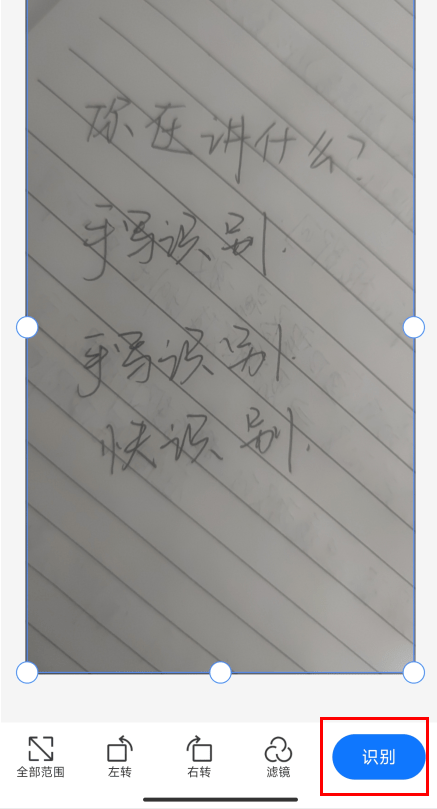 你在讲什么?
手写识别.
手写识别.
快识别.
全部范围 左转 右转 滤镜 识别